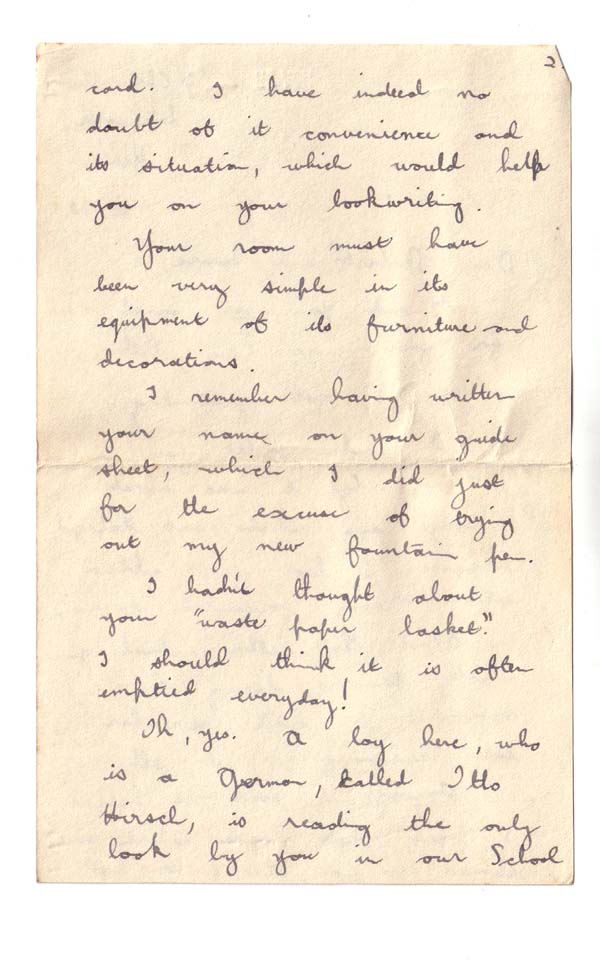 2.
card. I have indeed no
doubt of it convenience and
its situation, which would help
you on your bookwriting.
Your room must have
been very simple in its
equipment of its furniture and
decorations.
I remember having written
your name on your guide
sheet, which I did just
for the excuse of trying
out my new fountain pen.
I hadn't thought about
your "waste paper basket."
I should think it is often
emptied everyday!
Oh, yes. A boy here, who
is a German, called Otto
Hirsch, is reading the only
book by you in our School